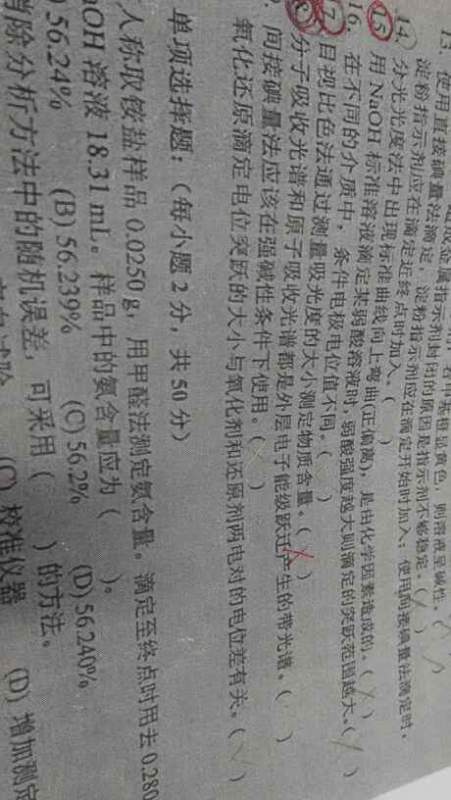 13. 使用直接碘量法滴定，淀粉指示剂应在滴定开始时加入；使用间接碘量法滴定时，
淀粉指示剂应在滴定近终点时加入。（ ）
14. 分光光度法中出现标准曲线向上弯曲(正偏离)，是由化学因素造成的。（
15. 用 NaOH 标准溶液滴定某弱酸溶液时，弱酸强度越大则滴定的突跃范围越大。（
16. 在不同的介质中，条件电极电位值不同。（ ）
17 目视比色法通过测量吸光度的大小测定物质含量。（ ）
分子吸收光谱和原子吸收光谱都是外层电子能级跃迁产生的带光谱。（ ）
. 间接碘量法应该在强碱性条件下使用。（ ）
氧化还原滴定电位突跃的大小与氧化剂和还原剂两电对的电位差有关。（ ）
单项选择题：（每小题 2 分，共 50 分）
人称取铵盐样品 0.0250 g，用甲醛法测定氨含量。滴定至终点时用去 0.280
OH 溶液 18.31 mL。样品中的氨含量应为（ ）。
) 56.24% (B) 56.239% (C) 56.2% (D) 56.240%
消除分析方法中的随机误差，可采用（ ）的方法。
(C) 校准仪器 (D) 增加测定